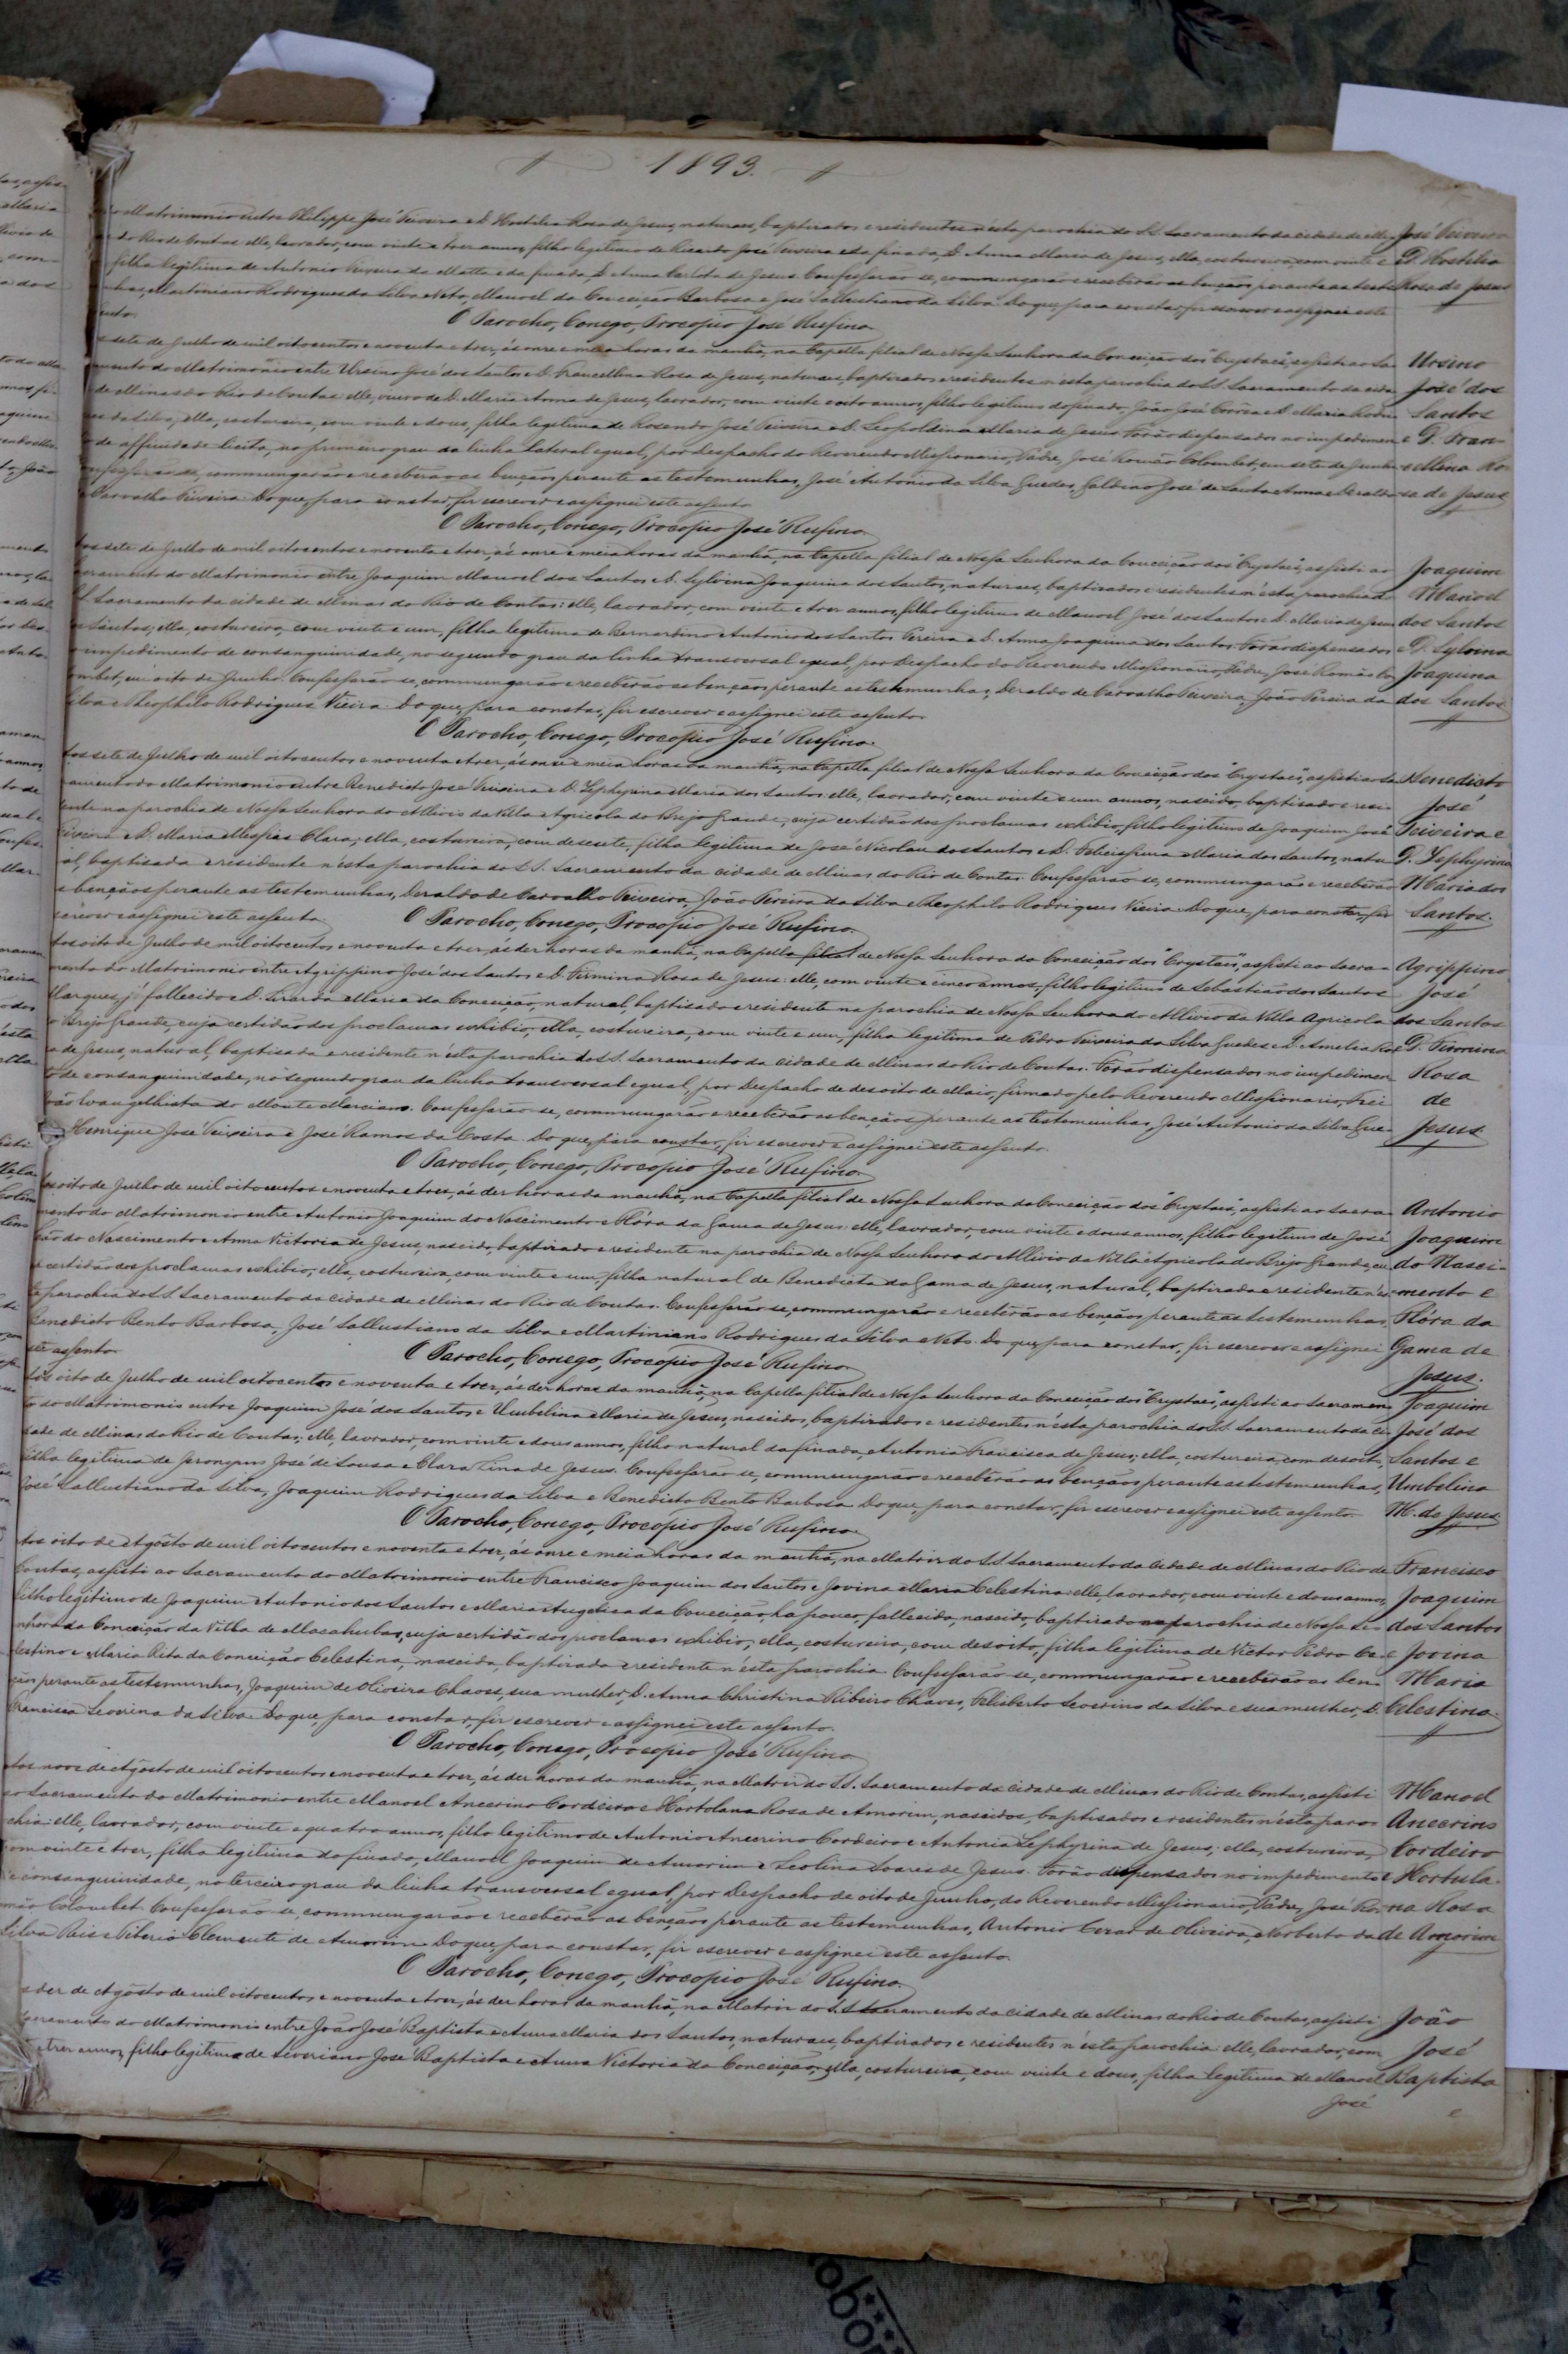 1893.
Matrimonio entre Philippe José Teixeira e D. Hostilia Rosa de Jesus, naturaes, baptisados e residentes n'ésta parochia do S.S. Sacramento da cidade de Mi- José Teixeira
do Rio de Contas: elle, lavrador, com vinte e trez annos, filho legitimo de Ricardo José Teixeira e da finada, D. Anna Maria de Jesus, ella, costureira, com vinte e D. Hostilia
filha legitima de Antonio Pereira da Matta e da finada, D. Anna Carlota de Jesus. Confessarão-se, commungarão e receberão as bençãos perante as teste- Rosa de Jesus
nhas, Martiniano Rodrigues da Silva e Neto, Manoel da Conceição Barbosa e José Sallustiano da Silva. Do que, para constar, fiz escrever e assignei este
sento.
O Parocho, Conego, Procopio José Rufino.
sete de Julho de mil oitocentos e noventa e trez, ás onze e meia horas da manhã, na Capella filial de Nossa Senhora da Conceição dos "Crystaes", assisti ao Sa- Ursino
mento do Matrimonio entre Ursino José dos Santos e D. Francellina Rosa de Jesus, naturaes, baptizados e residentes n'esta parochia do S.S. Sacramento da cida- José dos
de Minas do Rio de Contas: elle, viuvo de D. Maria Anna de Jesus, lavrador, com vinte e oito annos, filho legitimo do finado, João José Corrêa e D. Maria Rodri- Santos
da Silva; ella, costureira, com vinte e dous, filha legitima de Rosendo José Teixeira e D. Leopoldina Maria de Jesus. Forão dispensados no impedimen- e D. Fran-
to de affinidade licita, no primeiro grau da linha lateral egual, por Despacho do Reverendo Missionario, Padre, José Romão Colombet, em sete de Junho. cellina Ro-
onfessarão-se, commungarão e receberão as bençãos perante as testemunhas, José Antonio da Silva Guedes, Galdino José de Santa Anna e Deraldo sa de Jesus
Carvalho Teixeira. Do que, para constar, fiz escrever e assignei este assento.
O Parocho, Conego, Procopio José Rufino.
Aos sete de Julho de mil oitocentos e noventa e trez, ás onze e meia horas da manhã, na Capella filial de Nossa Senhora da Conceição dos "Crystaes", assisti ao Joaquim
cramento do Matrimonio entre Joaquim Manoel dos Santos e D. Sylvina Joaquina dos Santos, naturaes, baptizados e residentes n'ésta parochia do Manoel
S. Sacramento da cidade de Minas do Rio de Contas: elle, lavrador, com vinte e trez annos, filho legitimo de Manoel José dos Santos e D. Maria de Jesus dos Santos
Santos; ella, costureira, com vinte e um, filha legitima de Bernardino Antonio dos Santos Pereira e D. Anna Joaquina dos Santos. Forão dispensados e D. Sylvina
impedimento de consanguinidade, no segundo grau da linha transversal egual, por Despacho do Reverendo Missionario, Padre, José Romão Co- Joaquina
ombet, em oito de Junho. Confessarão-se, commungarão e receberão as bençãos perante as testemunhas, Deraldo de Carvalho Teixeira, João Pereira da dos Santos
Silva e Theophilo Rodrigues Vieira. Do que, para constar, fiz escrever e assignei este assento.
O Parocho, Conego, Procopio José Rufino.
Aos sete de Julho de mil oitocentos e noventa e trez, ás onze e meia horas da manhã, na Capella filial de Nossa Senhora da Conceição dos "Crystaes", assisti ao Sa- Benedicto
cramento do Matrimonio entre Benedicto José Teixeira e D. Zephyrina Maria dos Santos: elle, lavrador, com vinte e um annos, nascido, baptisado e resi- José
dente na parochia de Nossa Senhora do Allivio da Villa Agricola do Brejo Grande, cuja certidão dos proclamas exhibio, filho legitimo de Joaquim José Teixeira e
Teixeira e D. Maria Messias Clara; ella, costureira, com desesete, filha legitima de José Nicolau dos Santos e D. Felicissima Maria dos Santos, natu- D. Zephyrina
al, baptisada e residente n'ésta parochia do S.S. Sacramento da cidade de Minas do Rio de Contas. Confessarão-se, commungarão e receberão Maria dos
as bençãos perante as testemunhas, Deraldo de Carvalho Teixeira, João Pereira da Silva e Theophilo Rodrigues Vieira. Do que, para constar, fiz Santos.
screver e assignei este assento.
O Parocho, Conego, Procopio José Rufino.
Aos oito de Julho de mil oitocentos e noventa e trez, ás dez horas da manhã, na Capella filial de Nossa Senhora da Conceição dos "Crystaes", assisti ao Sacra- Agrippino
mento do Matrimonio entre Agrippino José dos Santos e D. Firmina Rosa de Jesus: elle, com vinte e cinco annos, filho legitimo de Sebastião dos Santos José
Marques, já fallecido e D. Maria da Conceição, natural, baptisado e residente na parochia de Nossa Senhora do Allivio da Villa Agricola dos Santos
Brejo Grande, cuja certidão dos proclamas exhibio; ella, costureira, com vinte e um, filha legitima de Pedro Teixeira da Silva Guedes e D. Amelia Ro- e D. Firmina
sa de Jesus, natural, baptisada e residente n'ésta parochia do S.S. Sacramento da cidade de Minas do Rio de Contas. Forão dispensados no impedimen- Rosa
to de consanguinidade, no segundo grau da linha transversal egual, por Despacho de desoito de Maio, firmado pelo Reverendo Missionario, Frei de
João Evangelhista do Monte Marciano. Confessarão-se, commungarão e receberão as bençãos perante as testemunhas, José Antonio da Silva Gue- Jesus
Henrique José Teixeira e José Ramos da Costa. Do que, para constar, fiz escrever e assignei este assento.
O Parocho, Conego, Procopio José Rufino.
oito de Julho de mil oitocentos e noventa e trez, ás dez horas da manhã, na Capella filial de Nossa Senhora da Conceição dos "Crystaes", assisti ao Sacra- Antonio
mento do Matrimonio entre Antonio Joaquim do Nascimento e Flóra da Gama de Jesus: elle, lavrador, com vinte e dous annos, filho legitimo de José Joaquim
do Nascimento e Anna Victoria de Jesus, nascido, baptizado e residente na parochia de Nossa Senhora do Allivio da Villa Agricola do Brejo Grande, cu- do Nasci-
certidão dos proclamas exhibio; ella, costureira, com vinte e um, filha natural de Benedicta da Gama de Jesus, natural, baptizada e residente n'és- mento e
ta parochia do S.S. Sacramento da cidade de Minas do Rio de Contas. Confessarão-se, commungarão e receberão as bençãos perante as testemunhas, Flóra da
Benedicto Bento Barbosa, José Sallustiano da Silva e Martiniano Rodrigues da Silva e Neto. Do que, para constar, fiz escrever e assignei Gama de
este assento.
O Parocho, Conego, Procopio José Rufino. Jesus.
Aos oito de Julho de mil oitocentos e noventa e trez, ás dez horas da manhã, na Capella filial de Nossa Senhora da Conceição dos "Crystaes", assisti ao Sacramen- Joaquim
to do Matrimonio entre Joaquim José dos Santos e Umbelina Maria de Jesus, nascidos, baptizados e residentes n'ésta parochia do S.S. Sacramento da ci- José dos
dade de Minas do Rio de Contas; elle, lavrador, com vinte e dous annos, filho natural da finada, Antonia Francisca de Jesus; ella, costureira, com desoito, Santos e
filha legitima de Jeronymo José de Sousa e Clara Lina de Jesus. Confessarão-se, commungarão e receberão as bençãos perante as testemunhas, Umbelina
José Sallustiano da Silva, Joaquim Rodrigues da Silva e Benedicto Bento Barbosa. Do que, para constar, fiz escrever e assignei este assento. M. de Jesus
O Parocho, Conego, Procopio José Rufino.
Aos oito de Agôsto de mil oitocentos e noventa e trez, ás onze e meia horas da manhã, na Matriz do S.S. Sacramento da cidade de Minas do Rio de Francisco
Contas, assisti ao Sacramento do Matrimonio entre Francisco Joaquim dos Santos e Jovina Maria Celestina: elle, lavrador, com vinte e dous annos, Joaquim
filho legitimo de Joaquim Antonio dos Santos e Maria Angelica da Conceição, ha pouco, fallecida, nascido, baptizado na parochia de Nossa Se- dos Santos
nhora da Conceição da Villa de Macahubas, cuja certidão dos proclamas exhibio; ella, costureira, com desoito, filha legitima de Victor Pedro Ce- e Jovina
lestino e Maria Rita da Conceição Celestina, nascida, baptizada e residente n'ésta parochia. Confessarão-se, commungarão e receberão as ben- Maria
çãos perante as testemunhas, Joaquim de Oliveira Chaves, sua mulher, D. Anna Christina Ribeiro Chaves, Feliberto Severino da Silva e sua mulher, D. Celestina.
Francisca Severina da Silva. Do que, para constar, fiz escrever e assignei este assento.
O Parocho, Conego, Procopio José Rufino
Aos nove de Agôsto de mil oitocentos e noventa e trez, ás dez horas da manhã, na Matriz do S.S. Sacramento da cidade de Minas do Rio de Contas, assisti Manoel
ao Sacramento do Matrimonio entre Manoel Ancerino Cordeiro e Hortolana Rosa de Amorim, nascidos, baptisados e residentes n'ésta paro- Ancerino
chia: elle, lavrador, com vinte e quatro annos, filho legitimo de Antonio Ancerino Cordeiro e Antonia Zephyrina de Jesus; ella, costureira, Cordeiro
com vinte e trez, filha legitima do finado, Manoel Joaquim de Amorim e Leolina Soares de Jesus. Forão dispensados no impedimento e Hortula-
de consanguinidade, no terceiro grau da linha transversal egual, por Despacho de oito de Junho, do Reverendo Missionario, Padre, José Ro- na Rosa
mão Colombet. Confessarão-se, commungarão e receberão as bençãos perante as testemunhas, Antonio Cezar de Oliveira, Norberto da de Amorim
Silva Reis e Tiberio Clemente de Amorim. Do que, para constar, fiz escrever e assignei este assento.
O Parocho, Conego, Procopio José Rufino.
dez de Agôsto de mil oitocentos e noventa e trez, ás dez horas da manhã, na Matriz do S.S. Sacramento da cidade de Minas do Rio de Contas, assisti João
cramento do Matrimonio entre João José Baptista e Anna Maria dos Santos, naturaes, baptizados e residentes n'ésta parochia: elle, lavrador, com José
e trez annos, filho legitimo de Severiano José Baptista e Anna Victoria da Conceição; ella, costureira, com vinte e dous, filha legitima de Manoel Baptista
José e